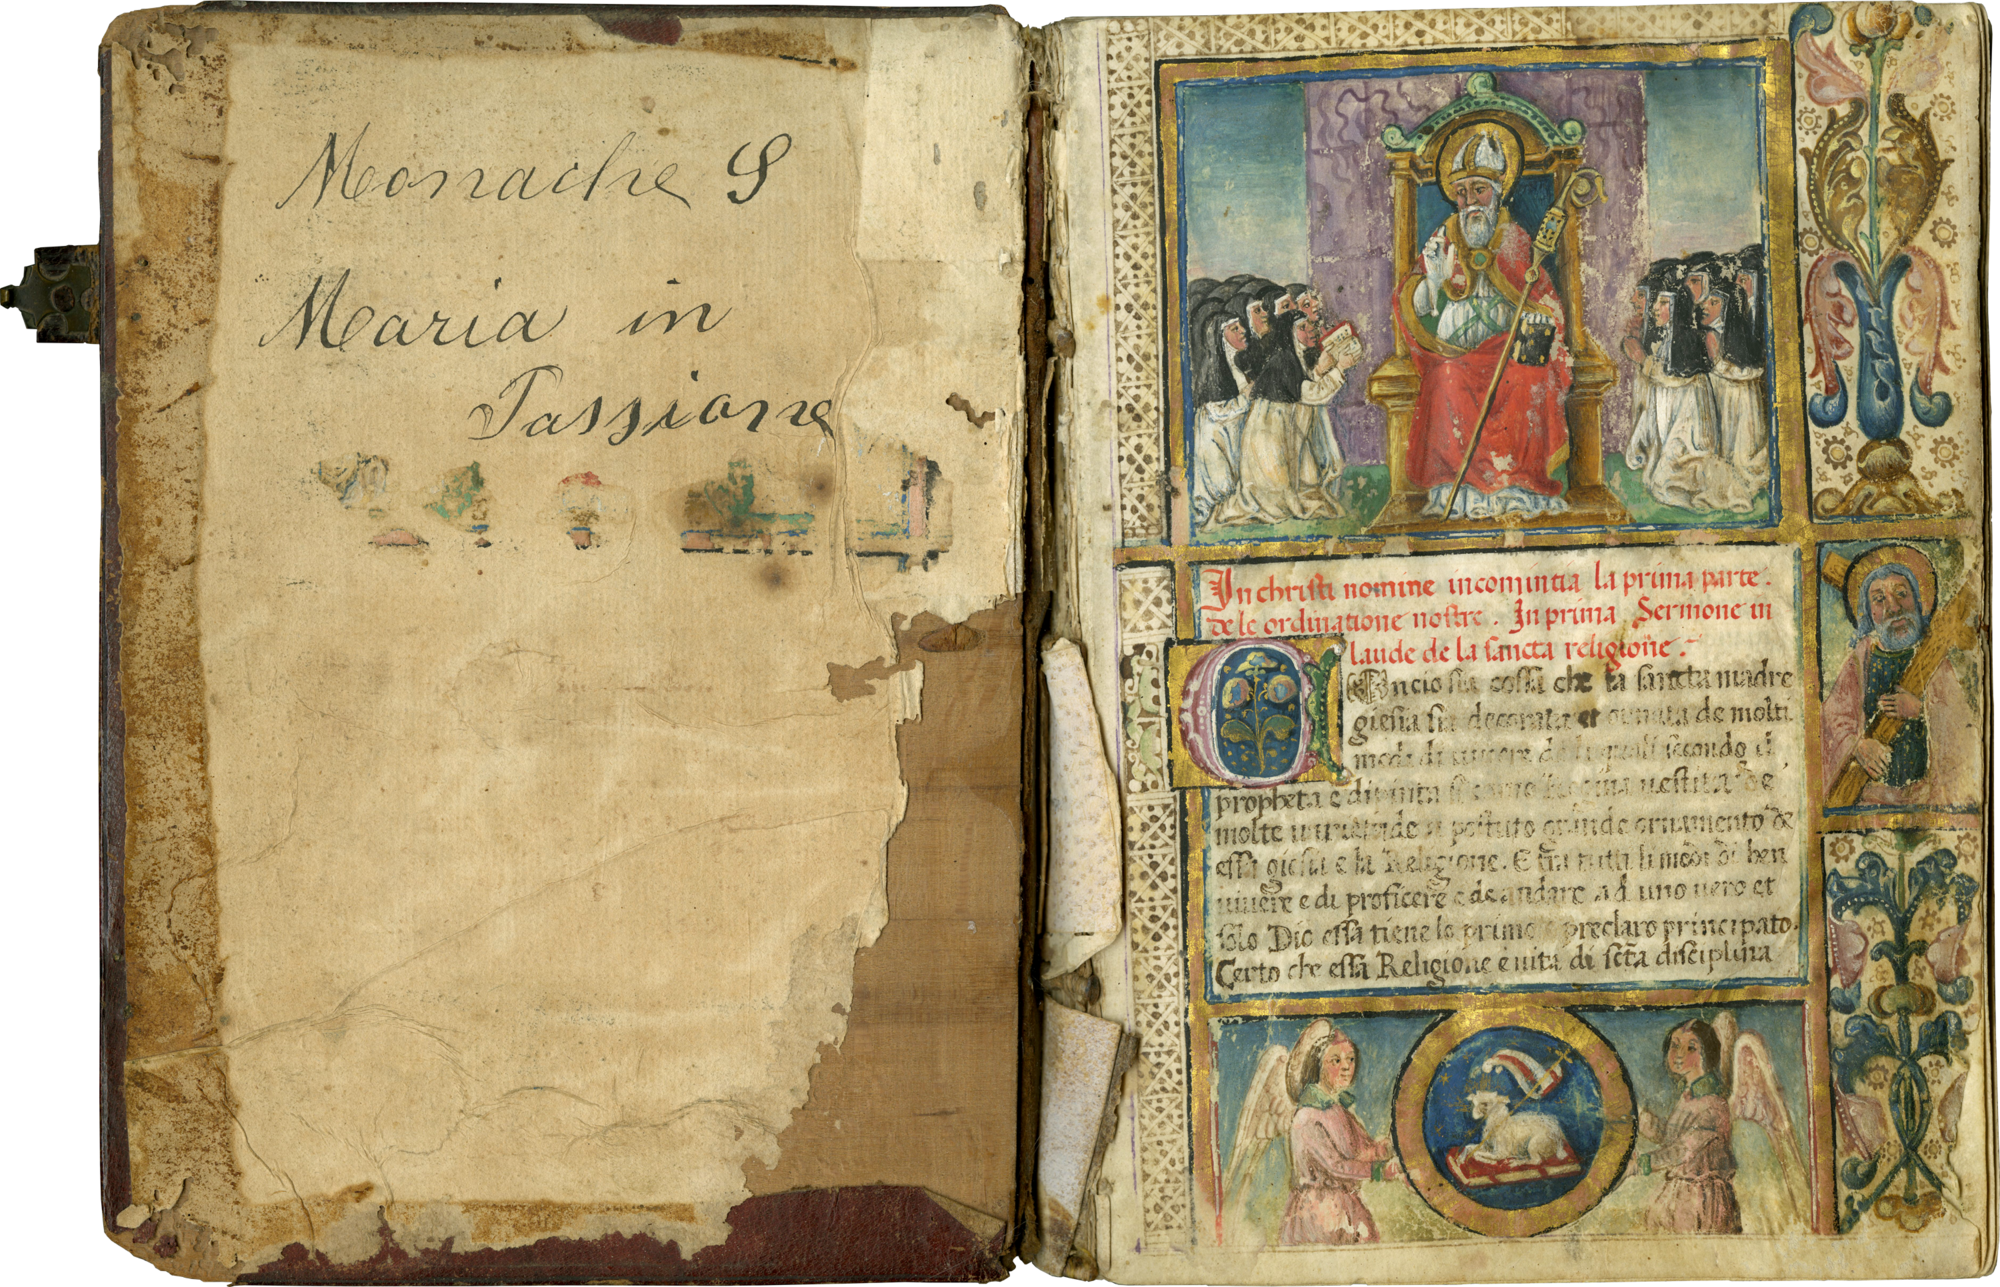 Monache S
Maria in
Passione
In christi nomine incomintia la prima parte .
de le ordinatione nostre . In prima Sermone in
laude de la sancta religiõne .
Oncio sia cossa che la sancta madre
giesia sia decorata et ornata de molti
modi di vivere de li quali secondo el
propheta e divinta si como Regina vestita de
molte
essa giesia e la Religione . E fra tutti li modi di ben
vivere e di proficere e de andare ad uno vero et
solo Dio essa tiene lo primo e preclaro principato .
Certo che essa Religione e vita di scta disciplina